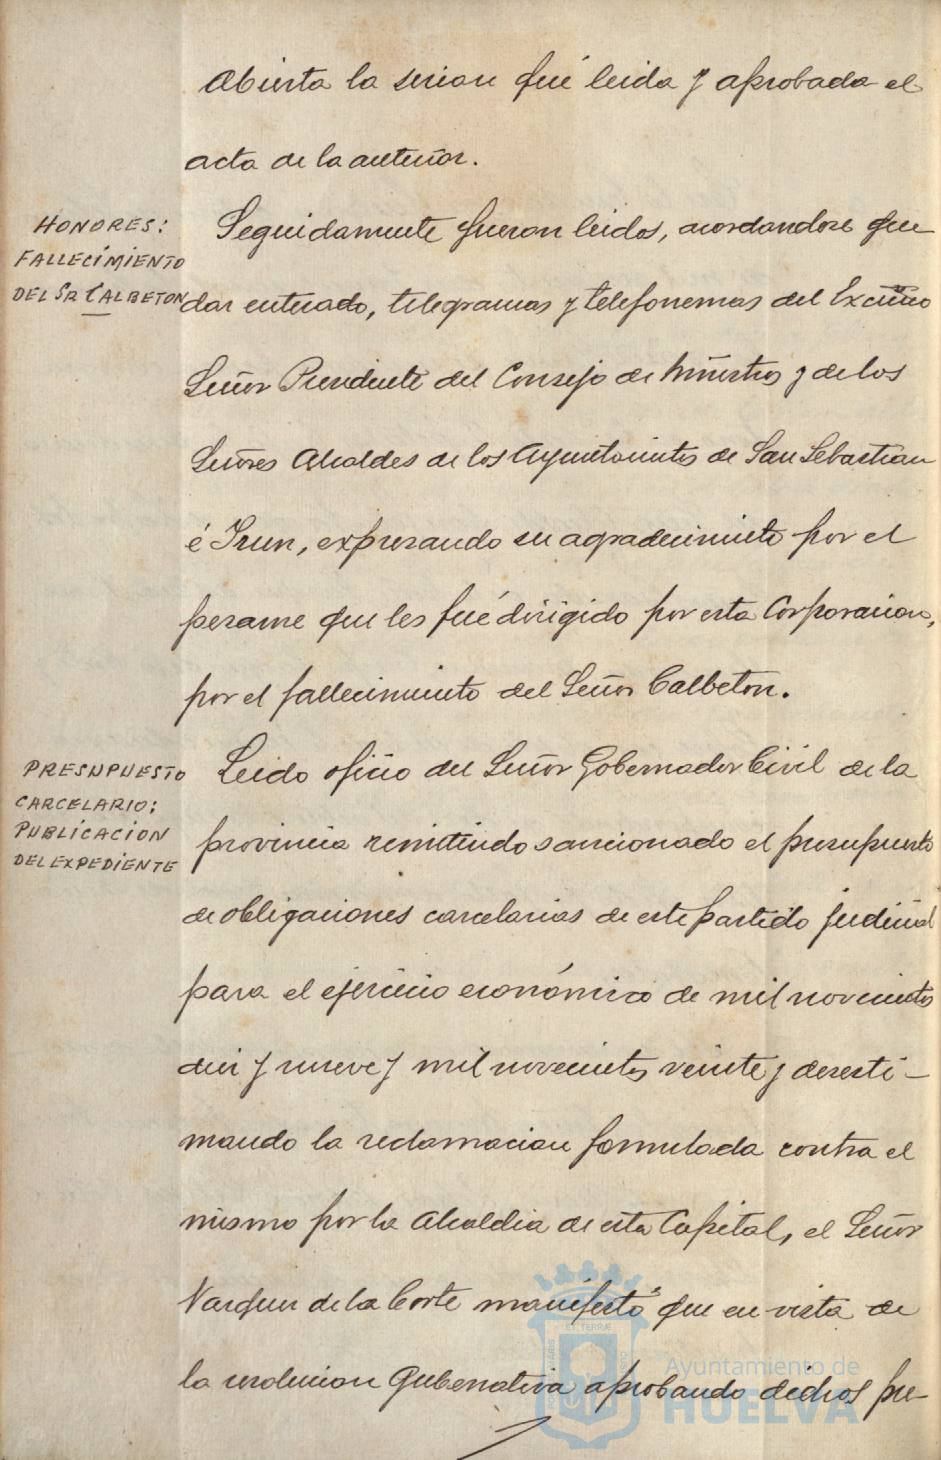 Abierta la sesion fué leida y aprobada el
acta de la anterior.
HONORES:
FALLECIMIENTO
DEL SR CALBETON
Seguidamente fueron leidos, acordandose que
dar enterado, telegramas y telefonemas del Excmo
Señor Presidente del Consejo de Ministros y de los
Señores Alcaldes de los Ayuntamientos de San Sebastian
é Irun, expresando su agradecimiento por el
pesame que les fué dirigido por esta Corporacion,
por el fallecimiento del Señor Calbeton.
PRESUPUESTO
CARCELARIO:
PUBLICACION
DEL EXPEDIENTE
Leido oficio del Señor Gobernador Civil de la
provincia remitiendo sancionado el presupuesto
de obligaciones carcelarias de este partido judicial
para el ejercicio económico de mil novecientos
diez y nueve y mil novecientos veinte y desesti-
mando la reclamacion formulada contra el
mismo por la Alcaldia de esta Capital, el Señor
Vazquez de la Corte manifestó que en vista de
la resolucion Gubernativa aprobando dichos pre-
Ayuntamiento de
HUELVA